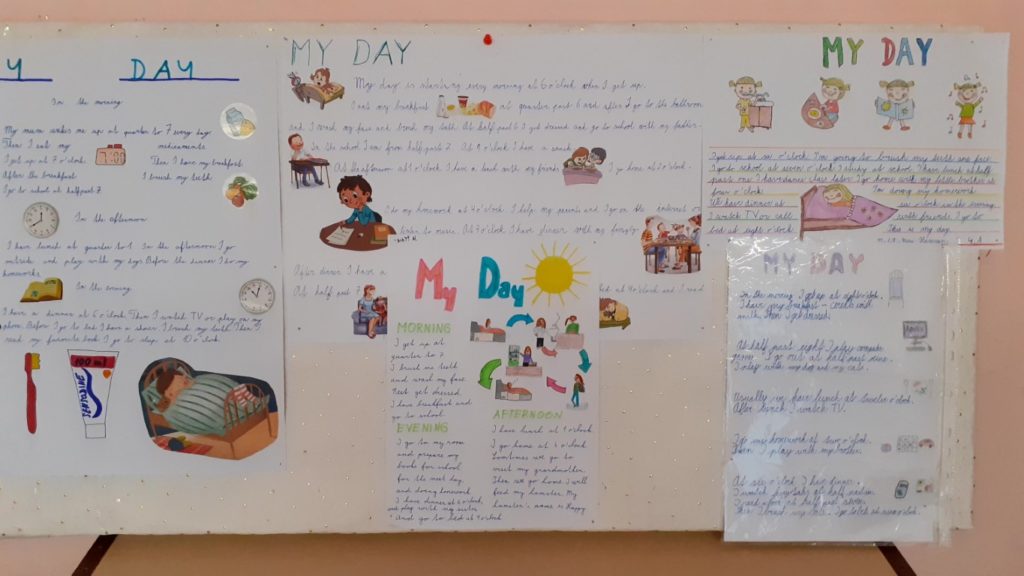 Y DAY
In the morning
My mum wakes me up at quarter to 7 every day.
Then I eat my medicaments.
I get up at 7 o'clock. Then I have my breakfast.
After the breakfast I brush my teeth.
I go to school at half past 7
7:00
In the afternoon
I have lunch at quarter to 1. In the afternoon I go
outside and play with my days. Before the dinner I do my
homeworks.
In the evening
I have a dinner at 6 o'clock. Then I watch TV or play on my
phone. Before I go to bed I have a shower. I brush my teeth. Then I
read my favorite book. I go to sleep at 10 o'clock.
100 ml
MY DAY
My day is starting every morning at 6 o'clock when I get up.
I eat my breakfast at quarter past 6 and after I go to the bathroom
and I wash my face and my teeth. At half past 6 I get dressed and go to school with my father.
In the school I am from half past 7. At 9 o'clock I have a snack
At the afternoon at 1 o'clock I have a lunch with my friends I go home at 2 o'clock.
I do my homework at 4 o'clock I help my parents and I go on the internet or
listen to music. At 7 o'clock I have dinner with my family.
After dinner I have a
At half past 7 bed at 9 o'clock and I read
My Day
MORNING
I get up at
quarter to 7
I brush my teeth
and wash my face
Next get dressed
I have breakfast and
go to school.
EVENING
I go to my room
and prepare my
books for school
for the next day
and doing homework
I have dinner at 6 o'clock
and play with my sister
and go to bed at 9 o'clock
AFTERNOON
I have lunch at 1 o'clock
I go home at 2 o'clock.
Sometimes we go to
meet my grandmother.
Then we go home. I will
feed my hamster. My
hamster's name is Happy
MY DAY
I get up at six o'clock. I'm going to brush my teeth and face.
I go to school at seven o'clock. I study at school. Then lunch at half
past one. I have dance class later. I go home with my little brother at
four o'clock. I'm doing my homework.
We have dinner at six o'clock in the evening.
I watch TV or call with friends. I go to
bed at eight o'clock. This is my day.
MY DAY
In the morning I get up at eight o'clock.
I have my breakfast – cereals and
milk. Then I get dressed.
At half past eight I play computer
games. I go out at half past nine.
I sleep with my dog and my cat.
Usually I have lunch at twelve o'clock.
After lunch I watch TV.
I do my homework at two o'clock.
Then I play with my brother.
At six o'clock I have dinner.